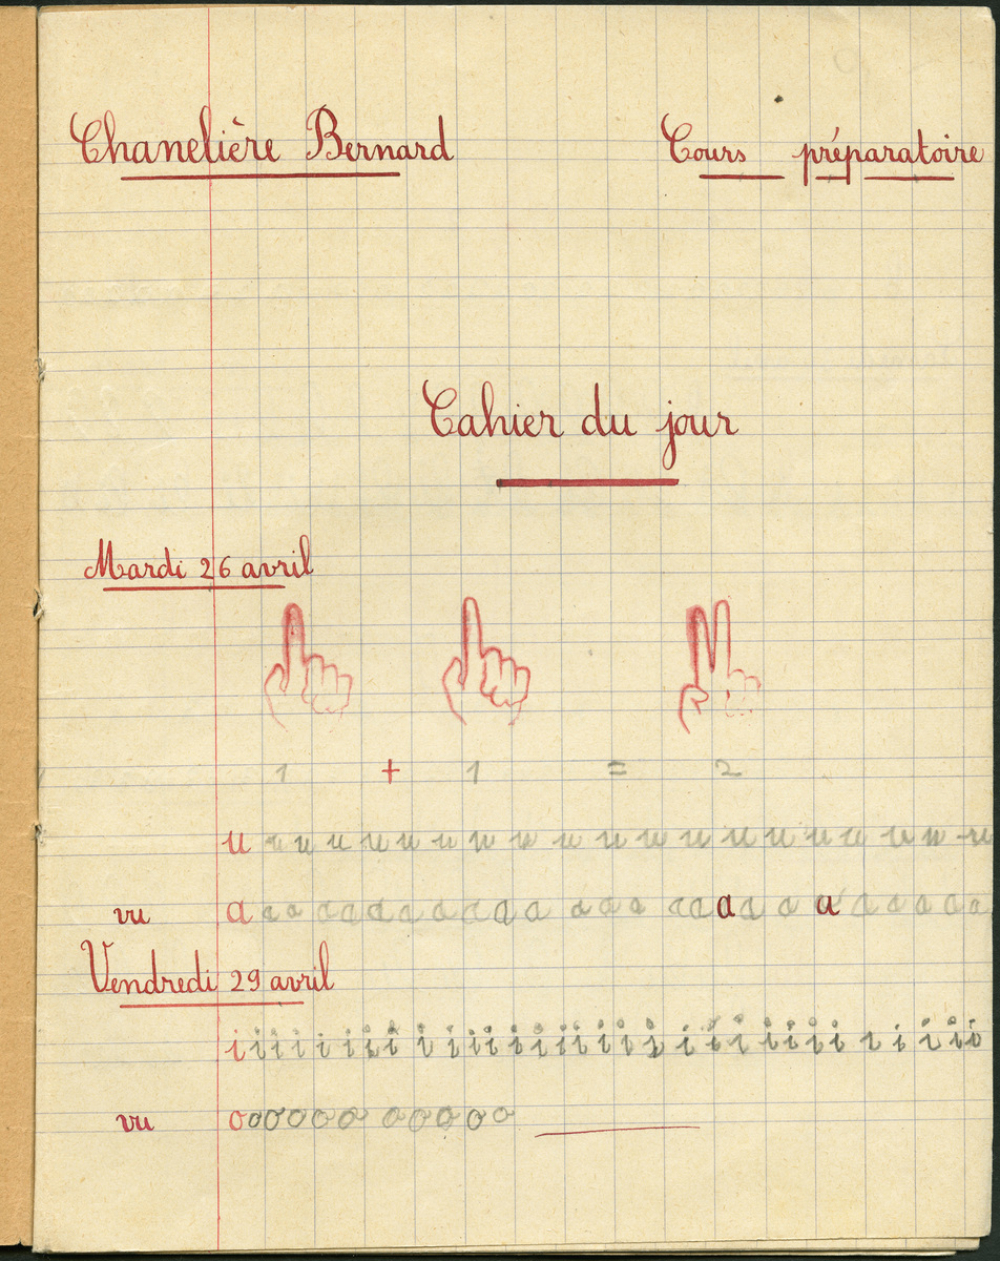 Chanelière Bernard Cours préparatoire
Cahier du jour
Mardi 26 avril
1 + 1 = 2
u u u u u u u u u u u u u u u u u u u
vu a a a a a a a a a a a a a a a a a a a u a a a a a
Vendredi 29 avril
i i i i i i i i i i i i i i i i i i i i i i i i i i i i i i
vu o o o o o o o o o o o